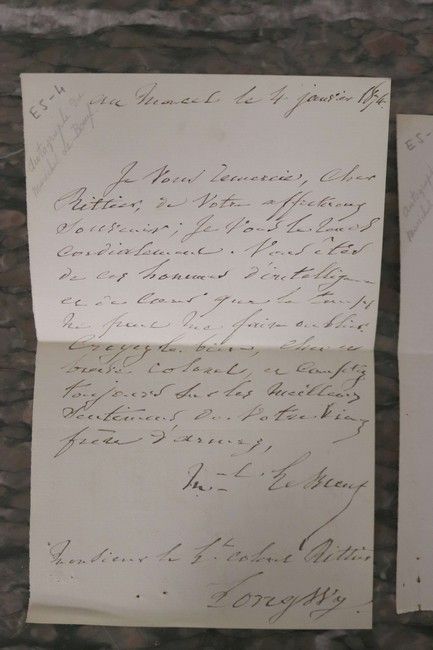 E5-4
autographe du
maréchal Le Bœuf
au Moncel le 4 janvier 1874.
Je vous remercie, cher
Rittier, de votre affectueux
souvenir; je vous le rends
cordialement. Vous êtes
de ces hommes d'intelligence
et de cœur que le temps
ne peut me faire oublier.
Croyez le bien, cher et
colonel, et comptez
toujours sur les meilleurs
sentiments de votre vieux
frère d'armes,
M.al Le Bœuf
Monsieur le Lt. colonel Rittier
Longwy.
E5-
autographe
maréchal